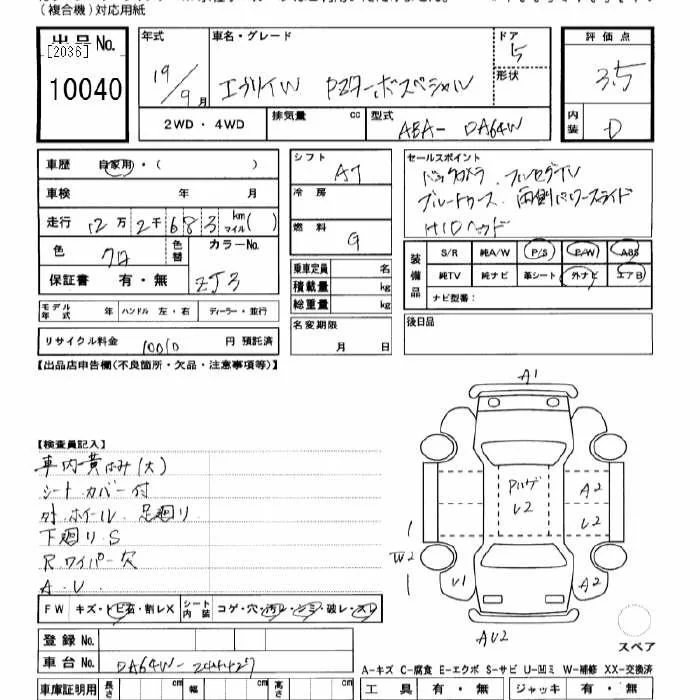 (複合機)対応用紙
出品No.
[2036]
10040
年式
19/9月
車名・グレード
エブリイW PZターボスペシャル
ドア
5
形状
評価点
3.5
内装
D
2WD・4WD
排気量 cc
型式
ABA- DA64W
車歴 自家用・( )
車検 年 月
走行 12万2千683 km マイル( )
色 クロ
色替
カラーNo.
ZJ3
保証書 有・無
シフト
AT
冷房
燃料
G
乗車定員 名
積載量 kg
総重量 kg
セールスポイント
バックカメラ フルセグTV
ブルートゥース 両側パワースライド
HIDヘッド
装備品
S/R 純A/W P/S P/W ABS
純TV 純ナビ 革シート 外ナビ エアB
ナビ型番:
モデル年式 年 ハンドル 左・右 ディーラー・並行
名変期限
月 日
後日品
リサイクル料金 10010 円 預託済
【出品店申告欄(不良箇所・欠品・注意事項等)】
A1
【検査員記入】
車内黄ばみ(大)
シートカバー付
外ホイール 足廻り
下廻り.S
Rワイパー欠
A.U.
Pハゲ
U2
A2
U2
W2
U1
A2
AU2
FW キズ・トビ石・割レX
シート内装 コゲ・穴・汚レ・シミ・破レ・スレ
スペア
登録No.
車台No.
DA64W-
車庫証明用 長さ cm 幅 cm 高さ cm
A-キズ C-腐食 E-エクボ S-サビ U-凹ミ W-補修 XX-交換済
工具 有・無 ジャッキ 有・無